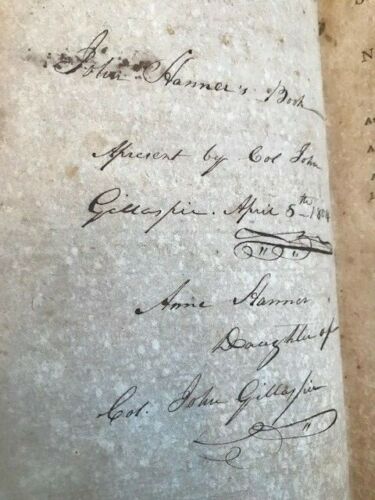 John Hanner's Book
Apresent by Col John
Gillaspie. April 5th 1804
Anne Hanner
Daughter of
Col. John Gillaspie